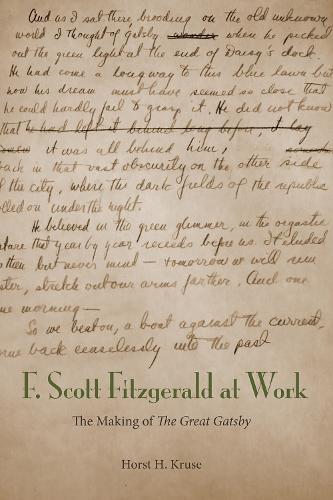 And as I sat there brooding on the old unknown
world I thought of Gatsby wonder when he picked
out the green light at the end of Daisy's dock.
He had come a long way to this blue lawn but
now his dream must have seemed so close that
he could hardly fail to grasp it. He did not know
that he had left it behind long before, it lay
it was all behind him,
back in that vast obscurity on the other side
of the city, where the dark fields of the republic
rolled on under the night.
He believed in the green glimmer, in the orgastic
future that year by year recedes before us. It eluded
us then but never mind — tomorrow we will run
faster, stretch out our arms farther. And one
fine morning —
So we beat on, a boat against the current,
borne back ceaselessly into the past
F. Scott Fitzgerald at Work
The Making of The Great Gatsby
Horst H. Kruse